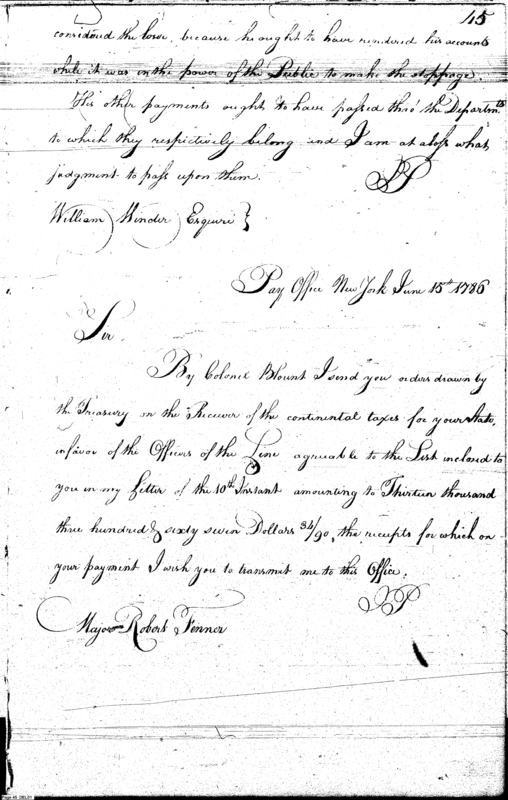 45
considered the loser, because he ought to have rendered his accounts
while it was in the power of the Public to make the stoppage.
His other payments ought to have passed thro' the Departmts
to which they respectively belong and I am at a loss what
judgment to pass upon them.
JP
William Winder Esquire }
Pay Office New York June 15th 1786
Sir.
By Colonel Blount I send you orders drawn by
the Treasury on the Receiver of the continental taxes for your State,
in favor of the Officers of the Line agreable to the List inclosed to
you in my Letter of the 10th Instant amounting to Thirteen thousand
three hundred & sixty seven Dollars 34/90, the receipts for which on
your payment I wish you to transmit me to this Office.
JP
Major Robert Fenner